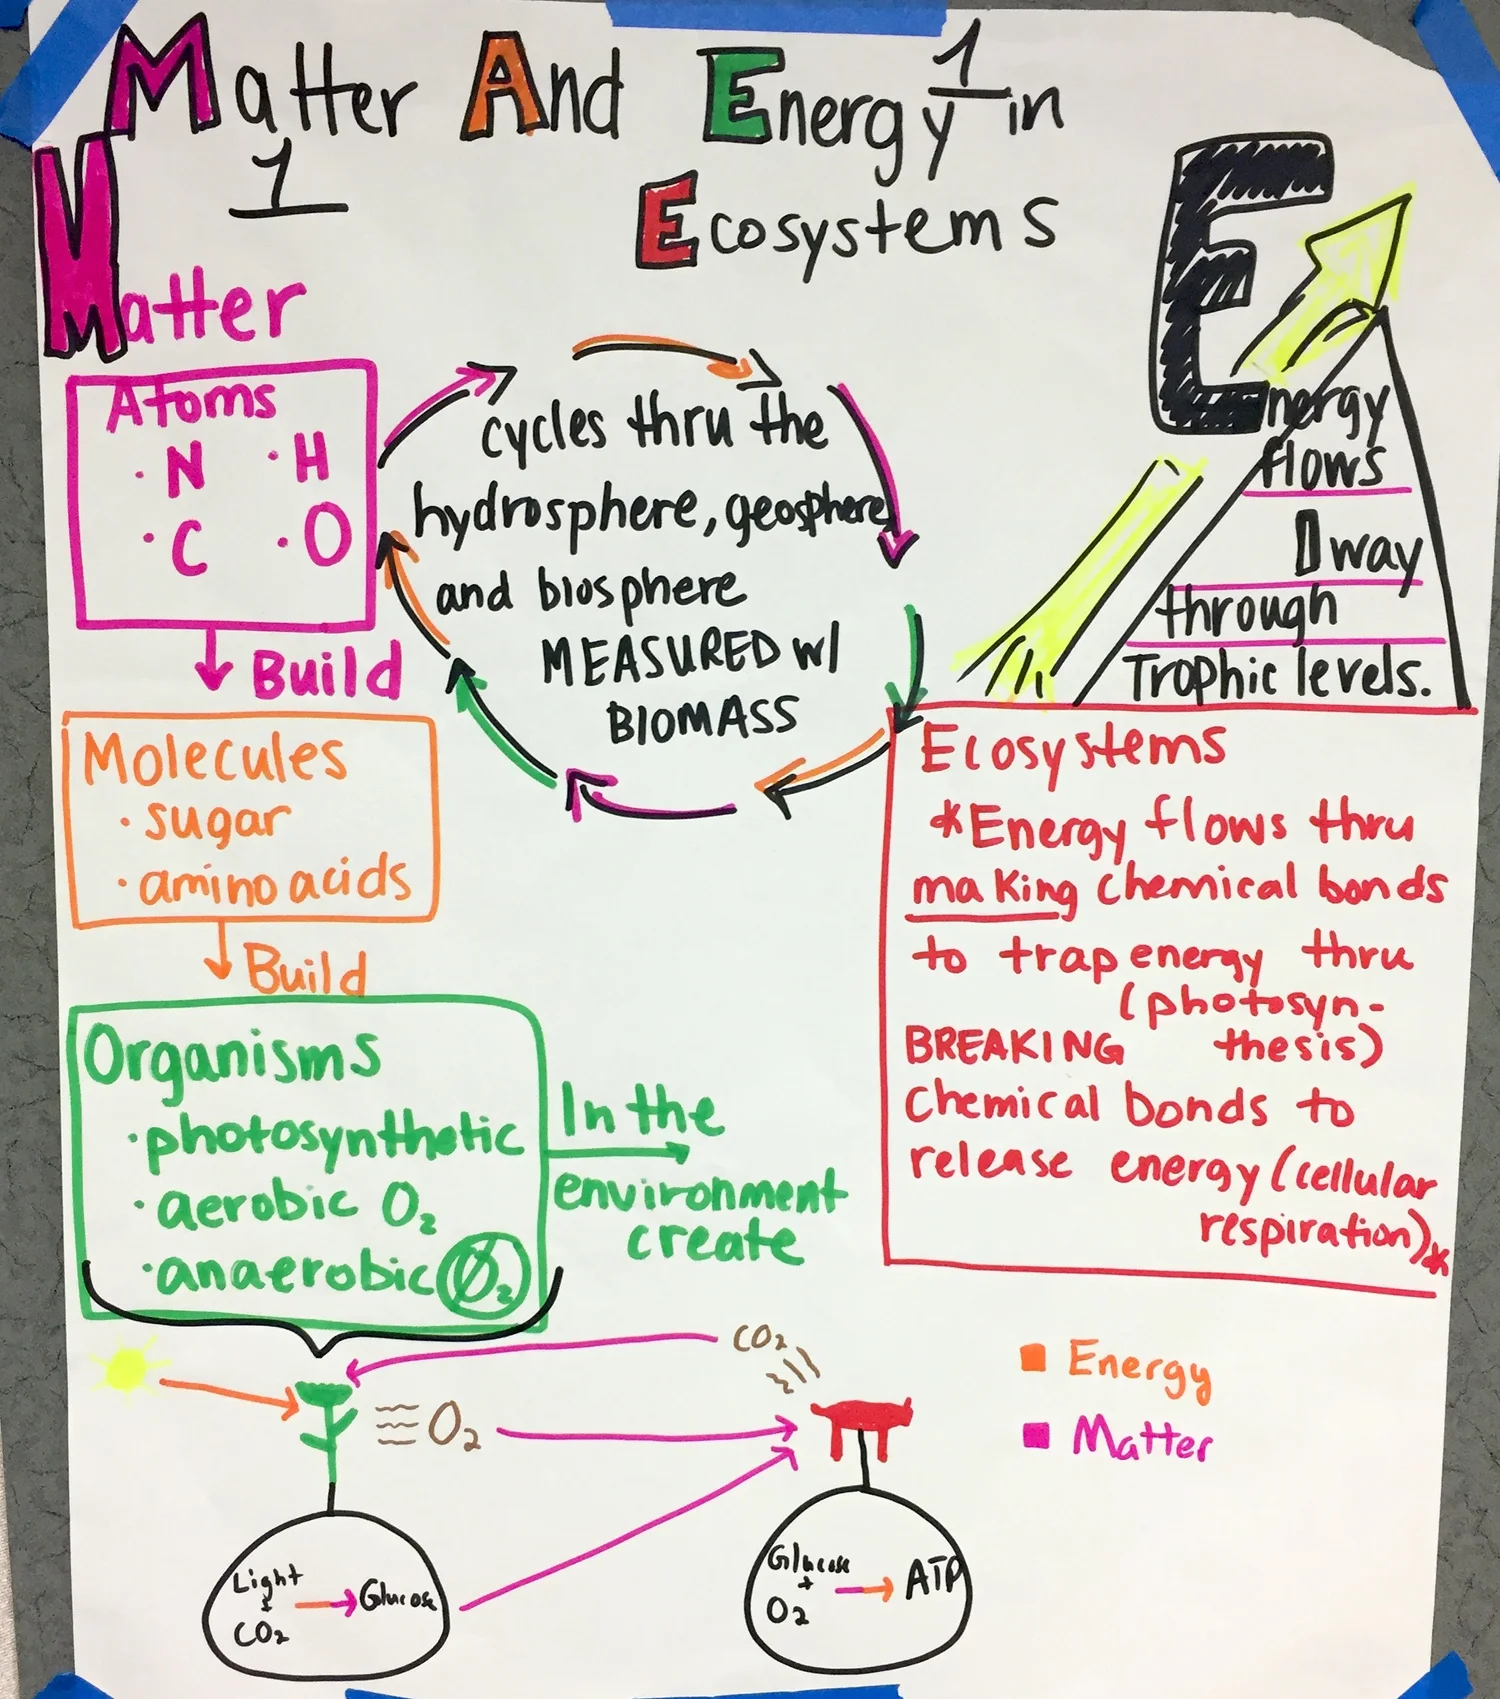 Matter And Energy 1 in
1
Ecosystems
Matter
Atoms
· N · H
· C · O
Build
Molecules
· sugar
· amino acids
Build
Organisms
· photosynthetic
· aerobic O₂
· anaerobic O₂
In the
environment
create
cycles thru the
hydrosphere, geosphere
and biosphere
MEASURED w/
BIOMASS
Energy
flows
1 way
through
Trophic levels.
Ecosystems
*Energy flows thru
making chemical bonds
to trap energy thru
(photosyn-
thesis)
BREAKING
Chemical bonds to
release energy (cellular
respiration)*
CO₂
O₂
Energy
Matter
Light
+
CO₂
Glucose
Glucose
+
O₂
ATP